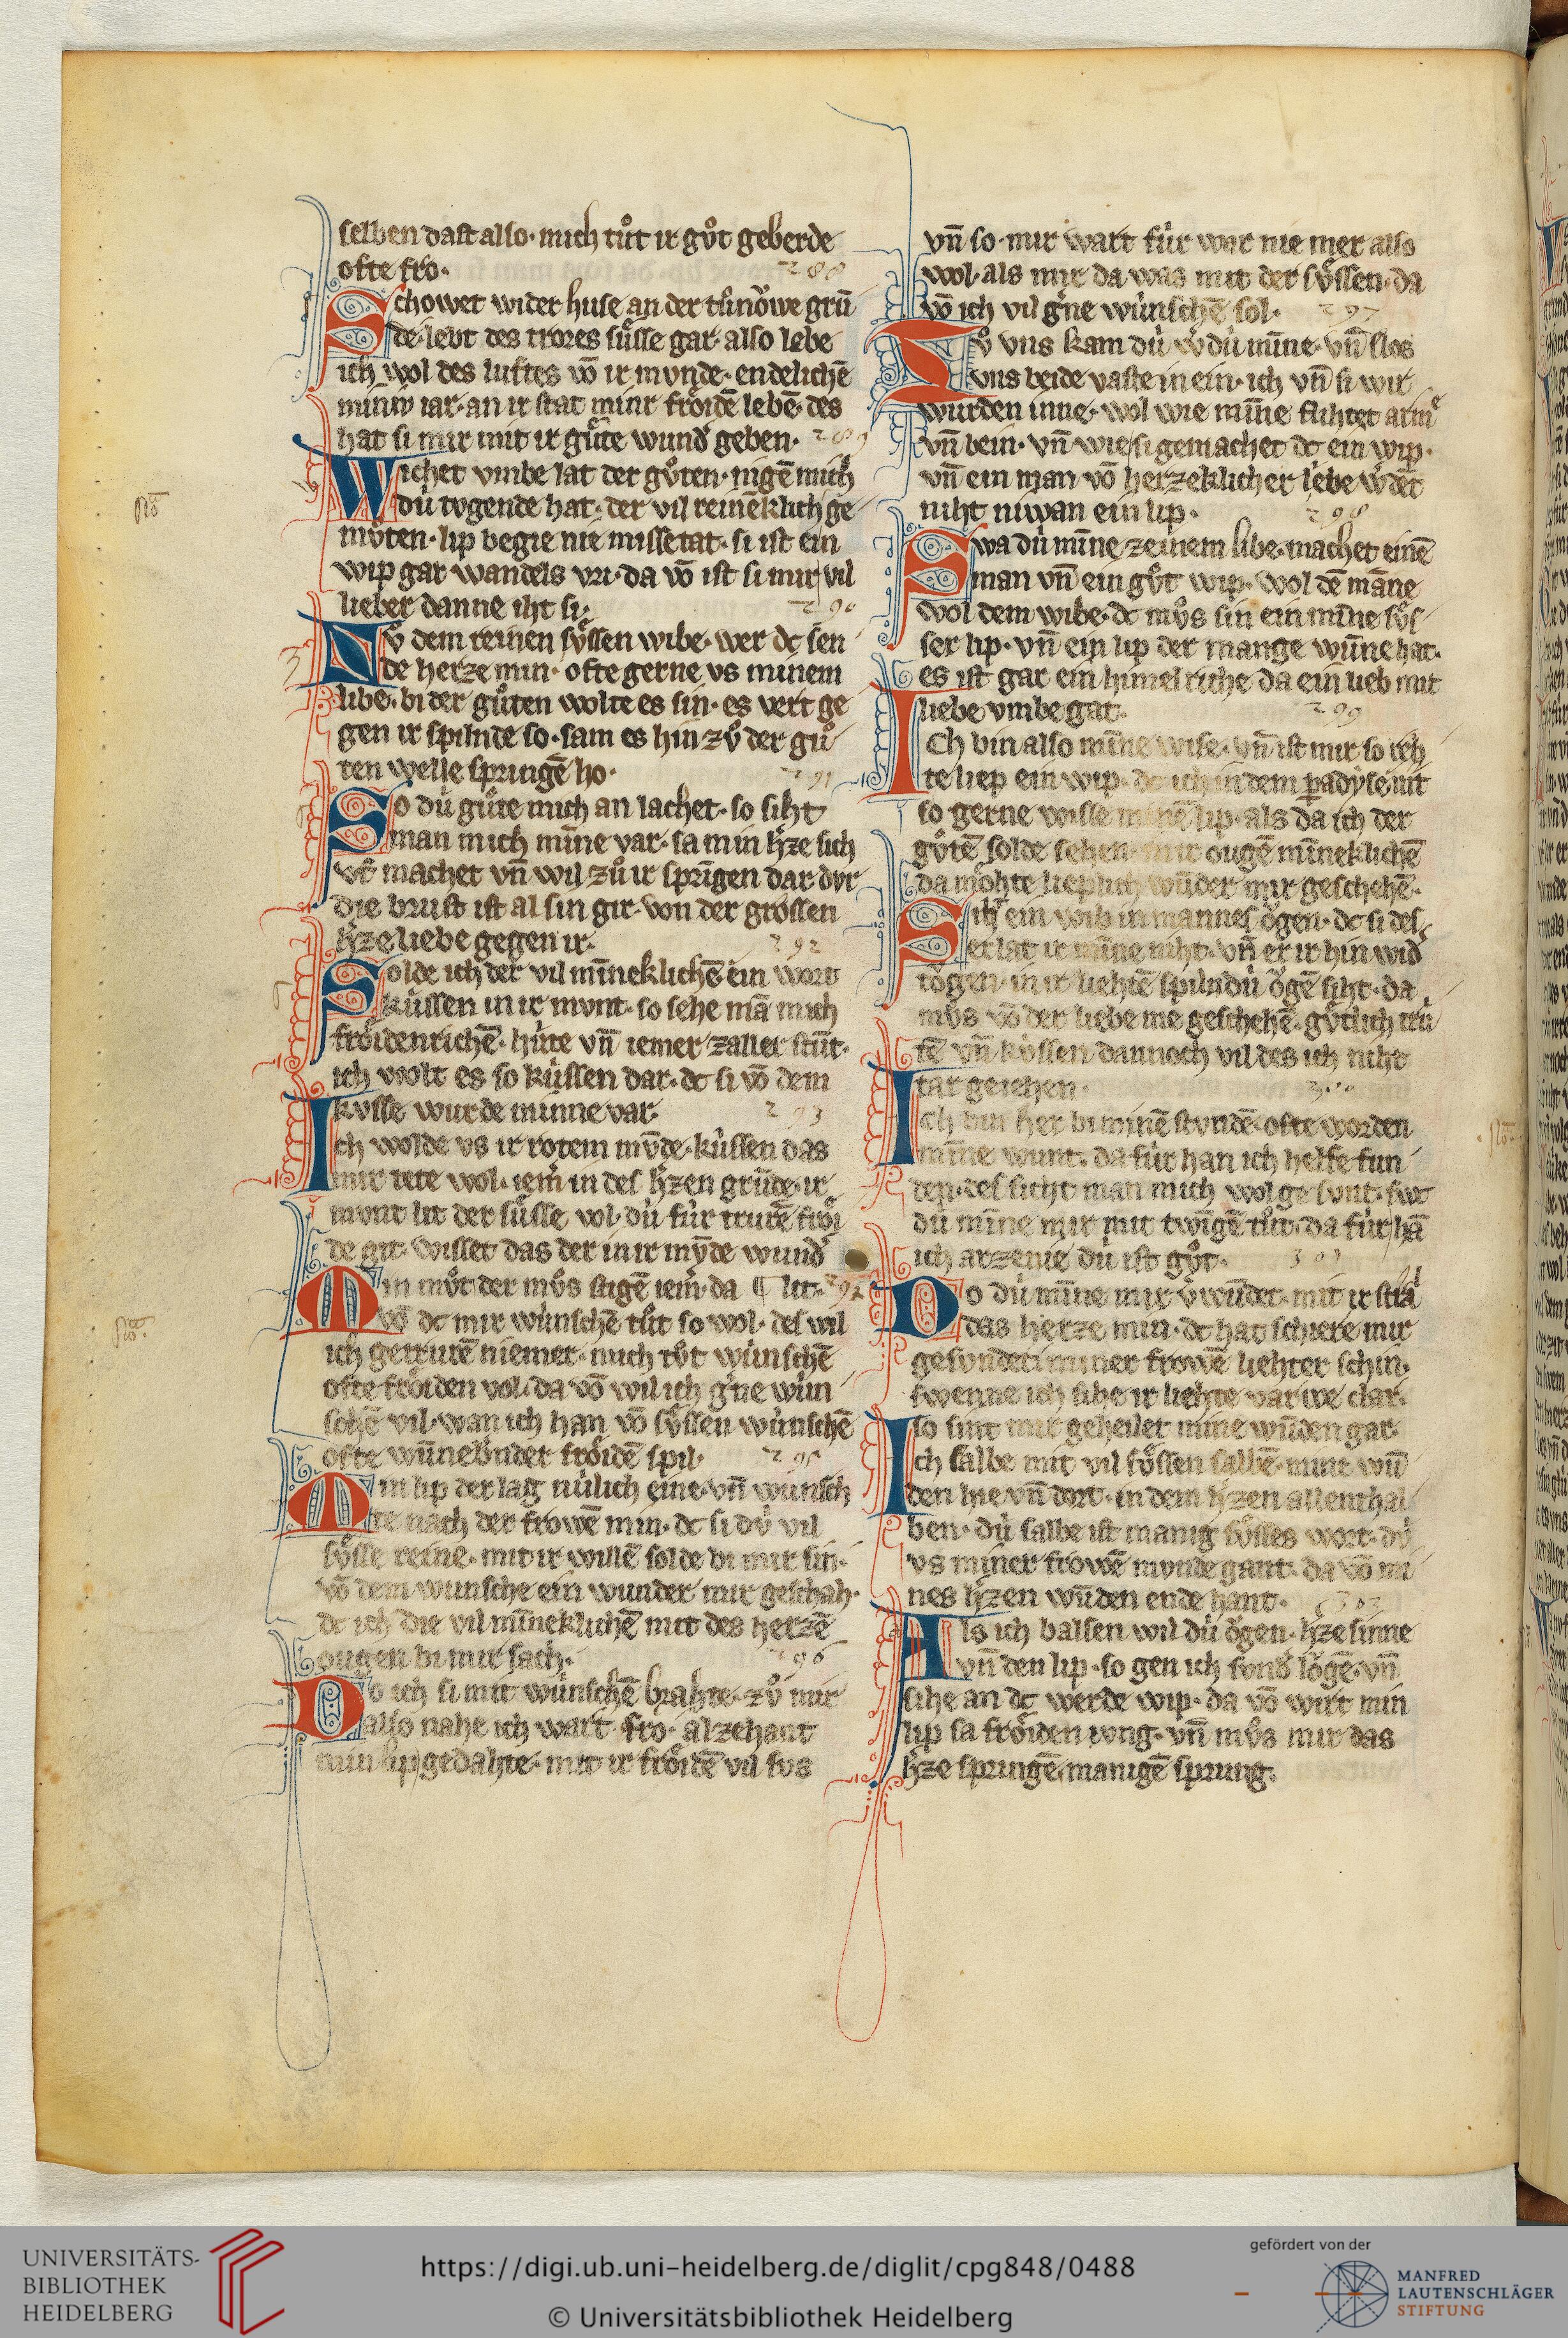 selben dast also· mich tuͦt ir guͦt geberde
ofte fro· 288
Schowet wider huse an der tuͦnoͮwe grū
de· lebt des trores suͤsse gar· also lebe
ich wol des luftes vō ir mvnde· endelichē
minw iar· an ir stat minr froͤidē lebē· des
hat si mir mit ir guͤte wund᷑ geben· 289
Wichet vmbe lat der guͦten· nigē mich
dù tvgende hat· der vil reineklich ge
muͦten· lip begie nie missetat· si ist ein
wip gar wandels vri· da vō ist si mir vil
lieber danne iht si· 290
Nv dem reinen svͤssen wibe· wer dc sen
de herze min· ofte gerne vs minem
libe· bi der guͦten wolte es sin· es vert ge
gen ir spilnde so· sam es hin zvͦ der guͦ
ten welle springē ho· 291
So dù guͤte mich an lachet· so siht
man mich mīne var· sa min h᷑ze sich
vf machet vn̄ wil zuͦ ir sprīgen dar dvr
die brust ist al sin gir· von der grossen
h᷑ze liebe gegen ir· 292
Solde ich der vil mīneklichē ein wort
kùssen in ir mvnt· so sehe mā mich
froͤidenrichē· hùte vn̄ iemer zaller stūt·
ich wolt es so kùssen dar· dc si vō dem
kvsse wurde minne var· 293
Ich wolde vs ir rotem mv̄de· kùssen das
mir tete wol· iem᷑ in des h᷑zen grūde· ir
mvnt lit der suͤsse vol· dù fùr trurē froͤi
de git· wisset das der in ir mv̄de wund᷑
Min muͦt der mvͦs stigē iem᷑· da ¶ lit· 294
vō dc mir wùnschē tuͦt so wol· des wil
ich getrurē niemer· mich tvͦt wùnschē
ofte froͤiden vol· da vō wil ich g᷑ne wùn
schē vil· wan ich han vō svͤssen wùnschē
ofte wūnebnder froͤidē spil· 295
Min lip der lag nùlich eine· vn̄ wùnsch
te nach der frowē min· dc si dv̀ vil
svͤsse reine· mit ir willē solde bi mir sin·
vō dem wunsche ein wunder mir geschah·
dc ich die vil mīneklichē mit des herzē
ougen bi mir sach· 296
Do ich si mit wùnschē brahte· zvͦ mir
also nahe ich wart· fro· alzehant
min lip gedahte· mit ir froͤidē vil svs
vn̄ so· mir wart fùr war nie mer also
wol· als mir da was mit der svͤssen· da
vō ich vil g᷑ne wùnschē sol· 297
Zvͦ vns kam dù w᷑dù mīne· vn̄ slos
vns beide vaste in ein· ich vn̄ si wir
wurden inne· wol wie mīne fluhtet arme
vn̄ bein· vn̄ wie si gemachet dc ein wip·
vn̄ ein man vō herzeklicher liebe w᷑dēt
niht niwan ein lip· 298
Swa dù mīne zeinem libe· machet einē
man vn̄ ein gvͦt wip· wol dē māne
wol dem wibe· dc mvͦs sin ein mīne svͤs
ser lip· vn̄ ein lip der mange wūne hat·
es ist gar ein himelriche da ein lieb mit
liebe vmbe gat· 299
Ich bin also mīne wise· vn̄ ist mir so reh
te liep ein wip· dc ich in dem padyse nit
so gerne wisse minē lip· als da ich der
gvͦtē solde sehen· in ir ougē mīneklichē
da moͤhte lieplich wūder mir geschehē·
Siht ein wib in mannes oͮgen· dc si des
erlat ir mīne niht· vn̄ er ir hin wid᷑
toͮgen· in ir liehtē spilndù oͮgē siht· da
mvͦs vō der liebe me geschehē· gvͤtlich trù
tē vn̄ kvssen dannoch vil des ich niht
tar geiehen· 300
Ich bin her bi minē stvndē· ofte worden
mīne wunt· da fùr han ich helfe fun
den· des siht man mich wol gesvnt· swe
dù mīne mir mit twīgē tuͦt· da fùr hā
ich arzenie dù ist gvͦt· 301
Do dù mīne mir v᷑wūdet· mit ir stral
das herze min· dc hat schiere mir
gesvndet· miner frowē liehter schin·
swenne ich sihe ir liehte varwe clar·
so sint mir geheilet mine wūden gar·
Ich salbe mit vil svͤssen salbē· mine wū
den hie vn̄ dort· in dem h᷑zen allenthal
ben· dù salbe ist manig svͤsses wort· dv̀
vs miner frowē mvnde gant· da vō mi
nes h᷑zen wūden ende hant· 303
Als ich balsen wil dù oͮgen· h᷑ze sinne
vn̄ den lip· so gen ich svnd᷑ loͮgē· vn̄
sihe an dc werde wip· da vō wirt min
lip sa froͤiden ivng· vn̄ mvͦs mir das
h᷑ze springē manigē sprung·
UNIVERSITÄTS-
BIBLIOTHEK
HEIDELBERG
https://digi.ub.uni-heidelberg.de/diglit/cpg848/0488
© Universitätsbibliothek Heidelberg
gefördert von der
MANFRED
LAUTENSCHLÄGER
STIFTUNG